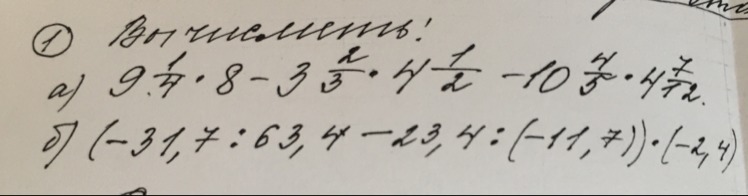 ① Вычислить!
а) 9 1/4 · 8 - 3 2/3 · 4 1/2 - 10 4/5 · 4 7/12.
б) (-31,7 : 63,4 - 23,4 : (-11,7)) · (-2,4)